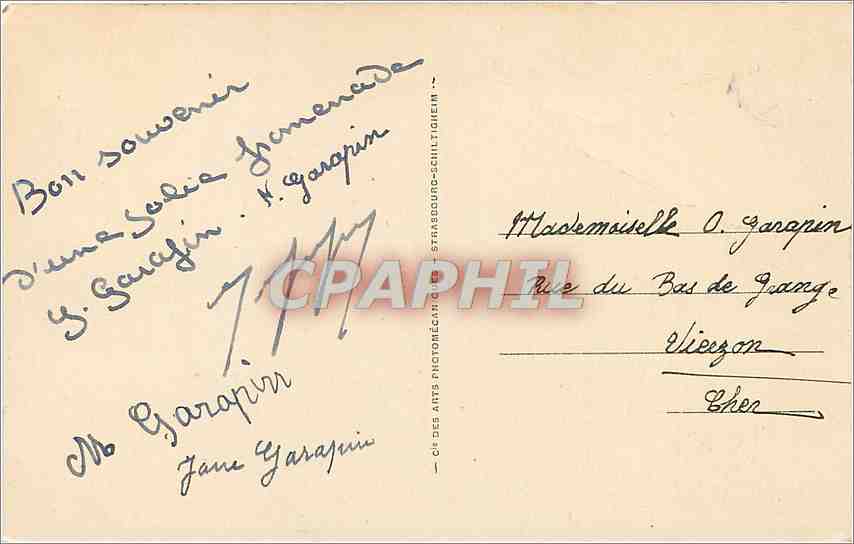 Bon souvenir
d'une Jolie promenade
G. Garapin . H. Garapin
M Garapin
Jane Garapin
— Cie DES ARTS PHOTOMÉCANIQUES — STRASBOURG-SCHILTIGHEIM —
CPAPHIL
Mademoiselle O. Garapin
Rue du Bas de Grange
Vierzon
Cher